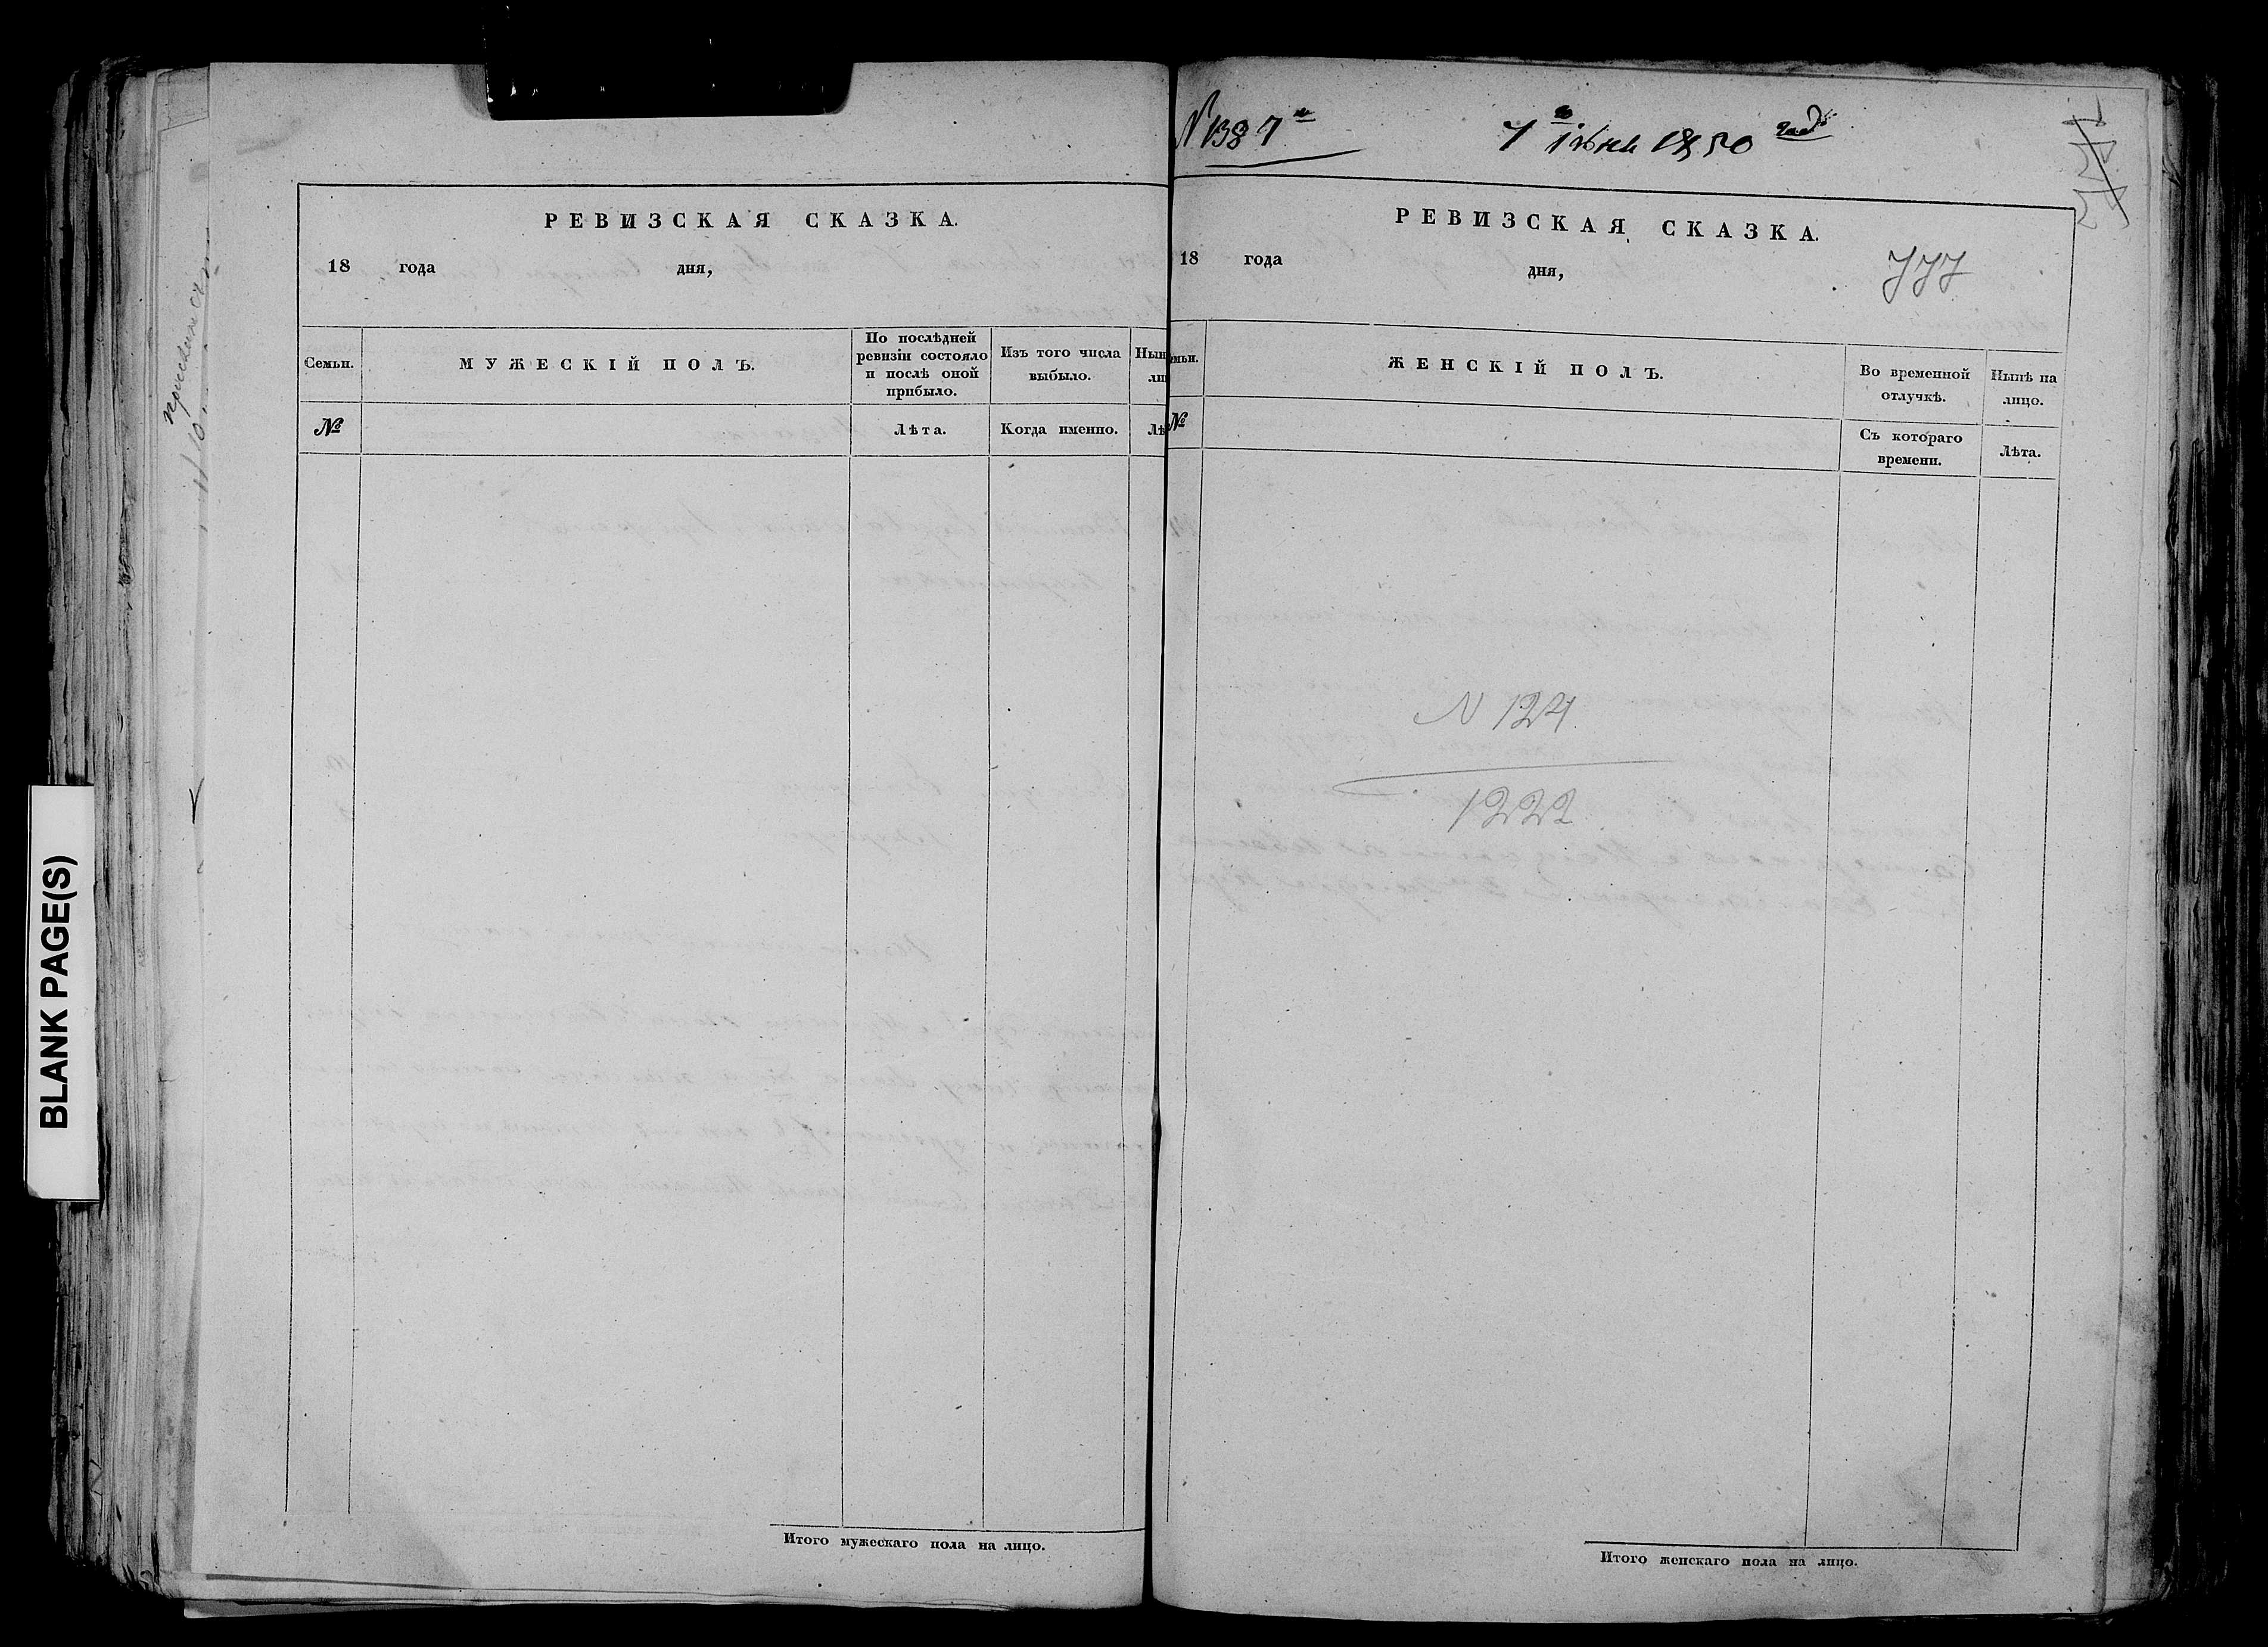 BLANK PAGE(S)
РЕВИЗСКАЯ СКАЗКА.
18 года дня,
Семьи.
МУЖЕСКІЙ ПОЛЪ.
По послѣдней
ревизіи состояло
и послѣ оной
прибыло.
Изъ того числа
выбыло.
Нын
ли
№
Лѣта.
Когда именно.
Лѣ
Итого мужескаго пола на лицо.
N 1387
7 іюня 1850 года
РЕВИЗСКАЯ СКАЗКА.
18 года дня,
777
емьи.
ЖЕНСКІЙ ПОЛЪ.
Во временной
отлучкѣ.
Нынѣ на
лицо.
№
Съ котораго
времени.
Лѣта.
N 124
1222
Итого женскаго пола на лицо.